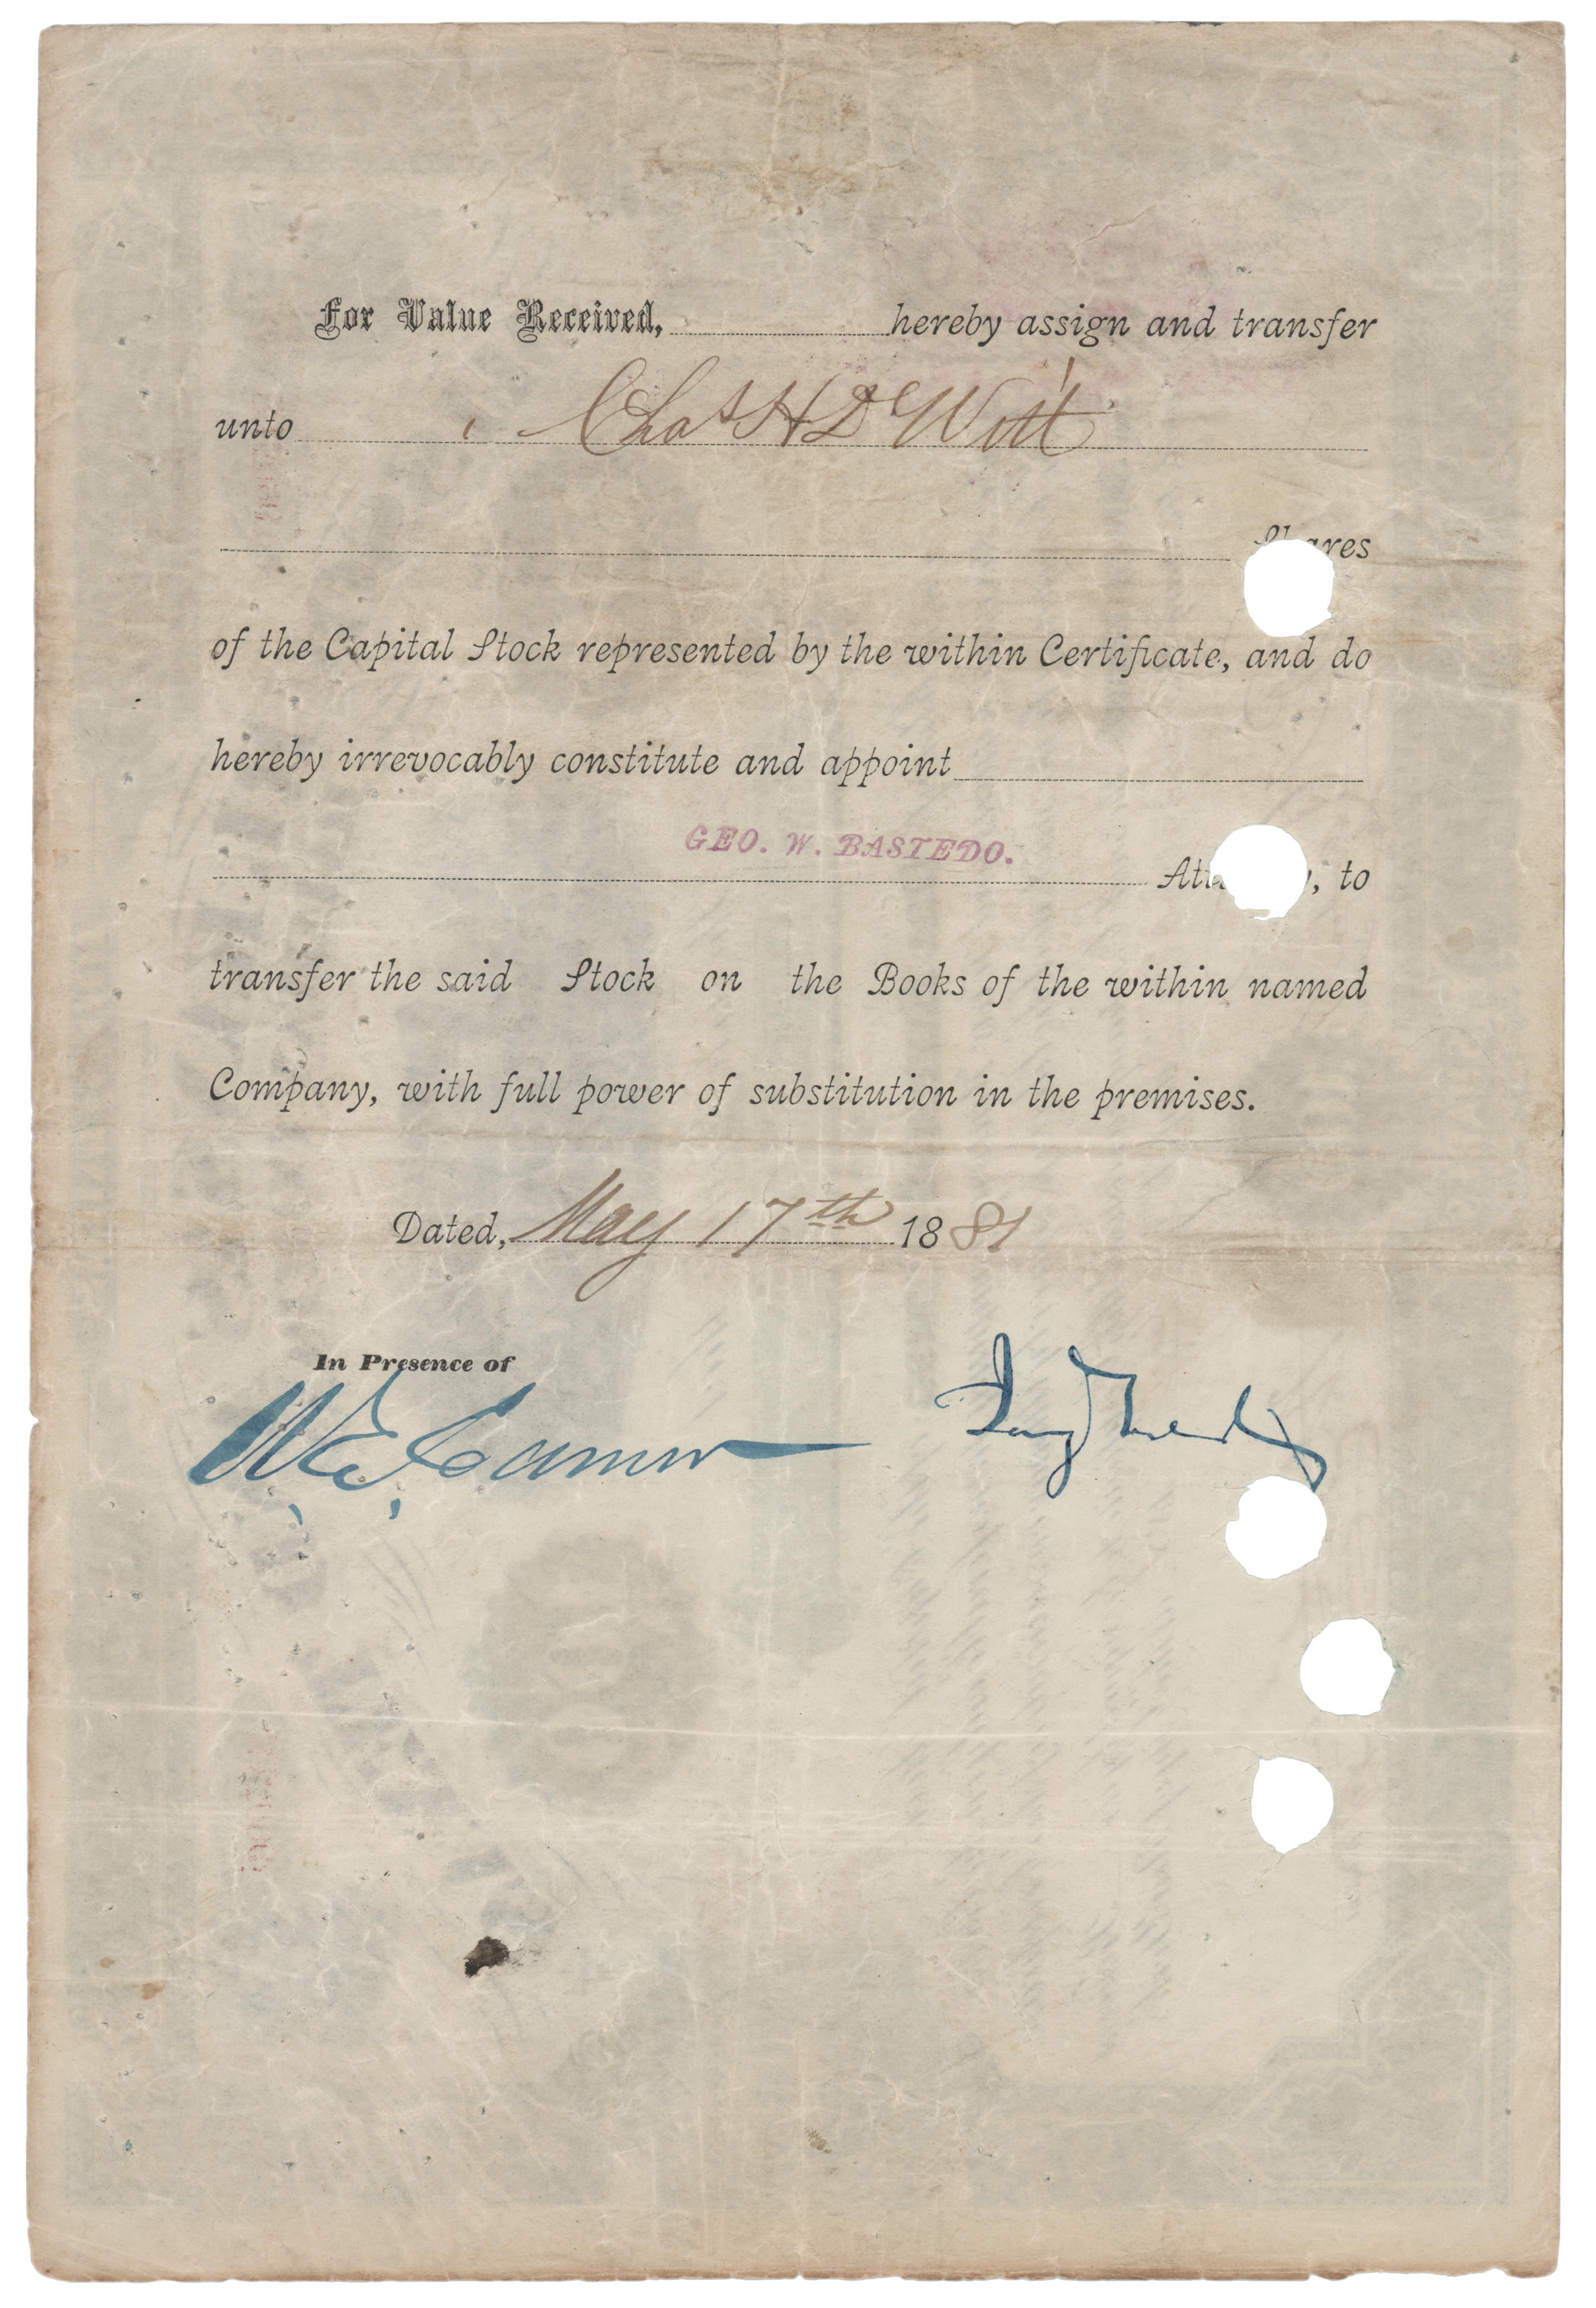 For Value Received, hereby assign and transfer
unto Chas H De Witt
Shares
of the Capital Stock represented by the within Certificate, and do
hereby irrevocably constitute and appoint
GEO. W. BASTEDO.
to
transfer the said Stock on the Books of the within named
Company, with full power of substitution in the premises.
Dated, May 17th 1881
In Presence of